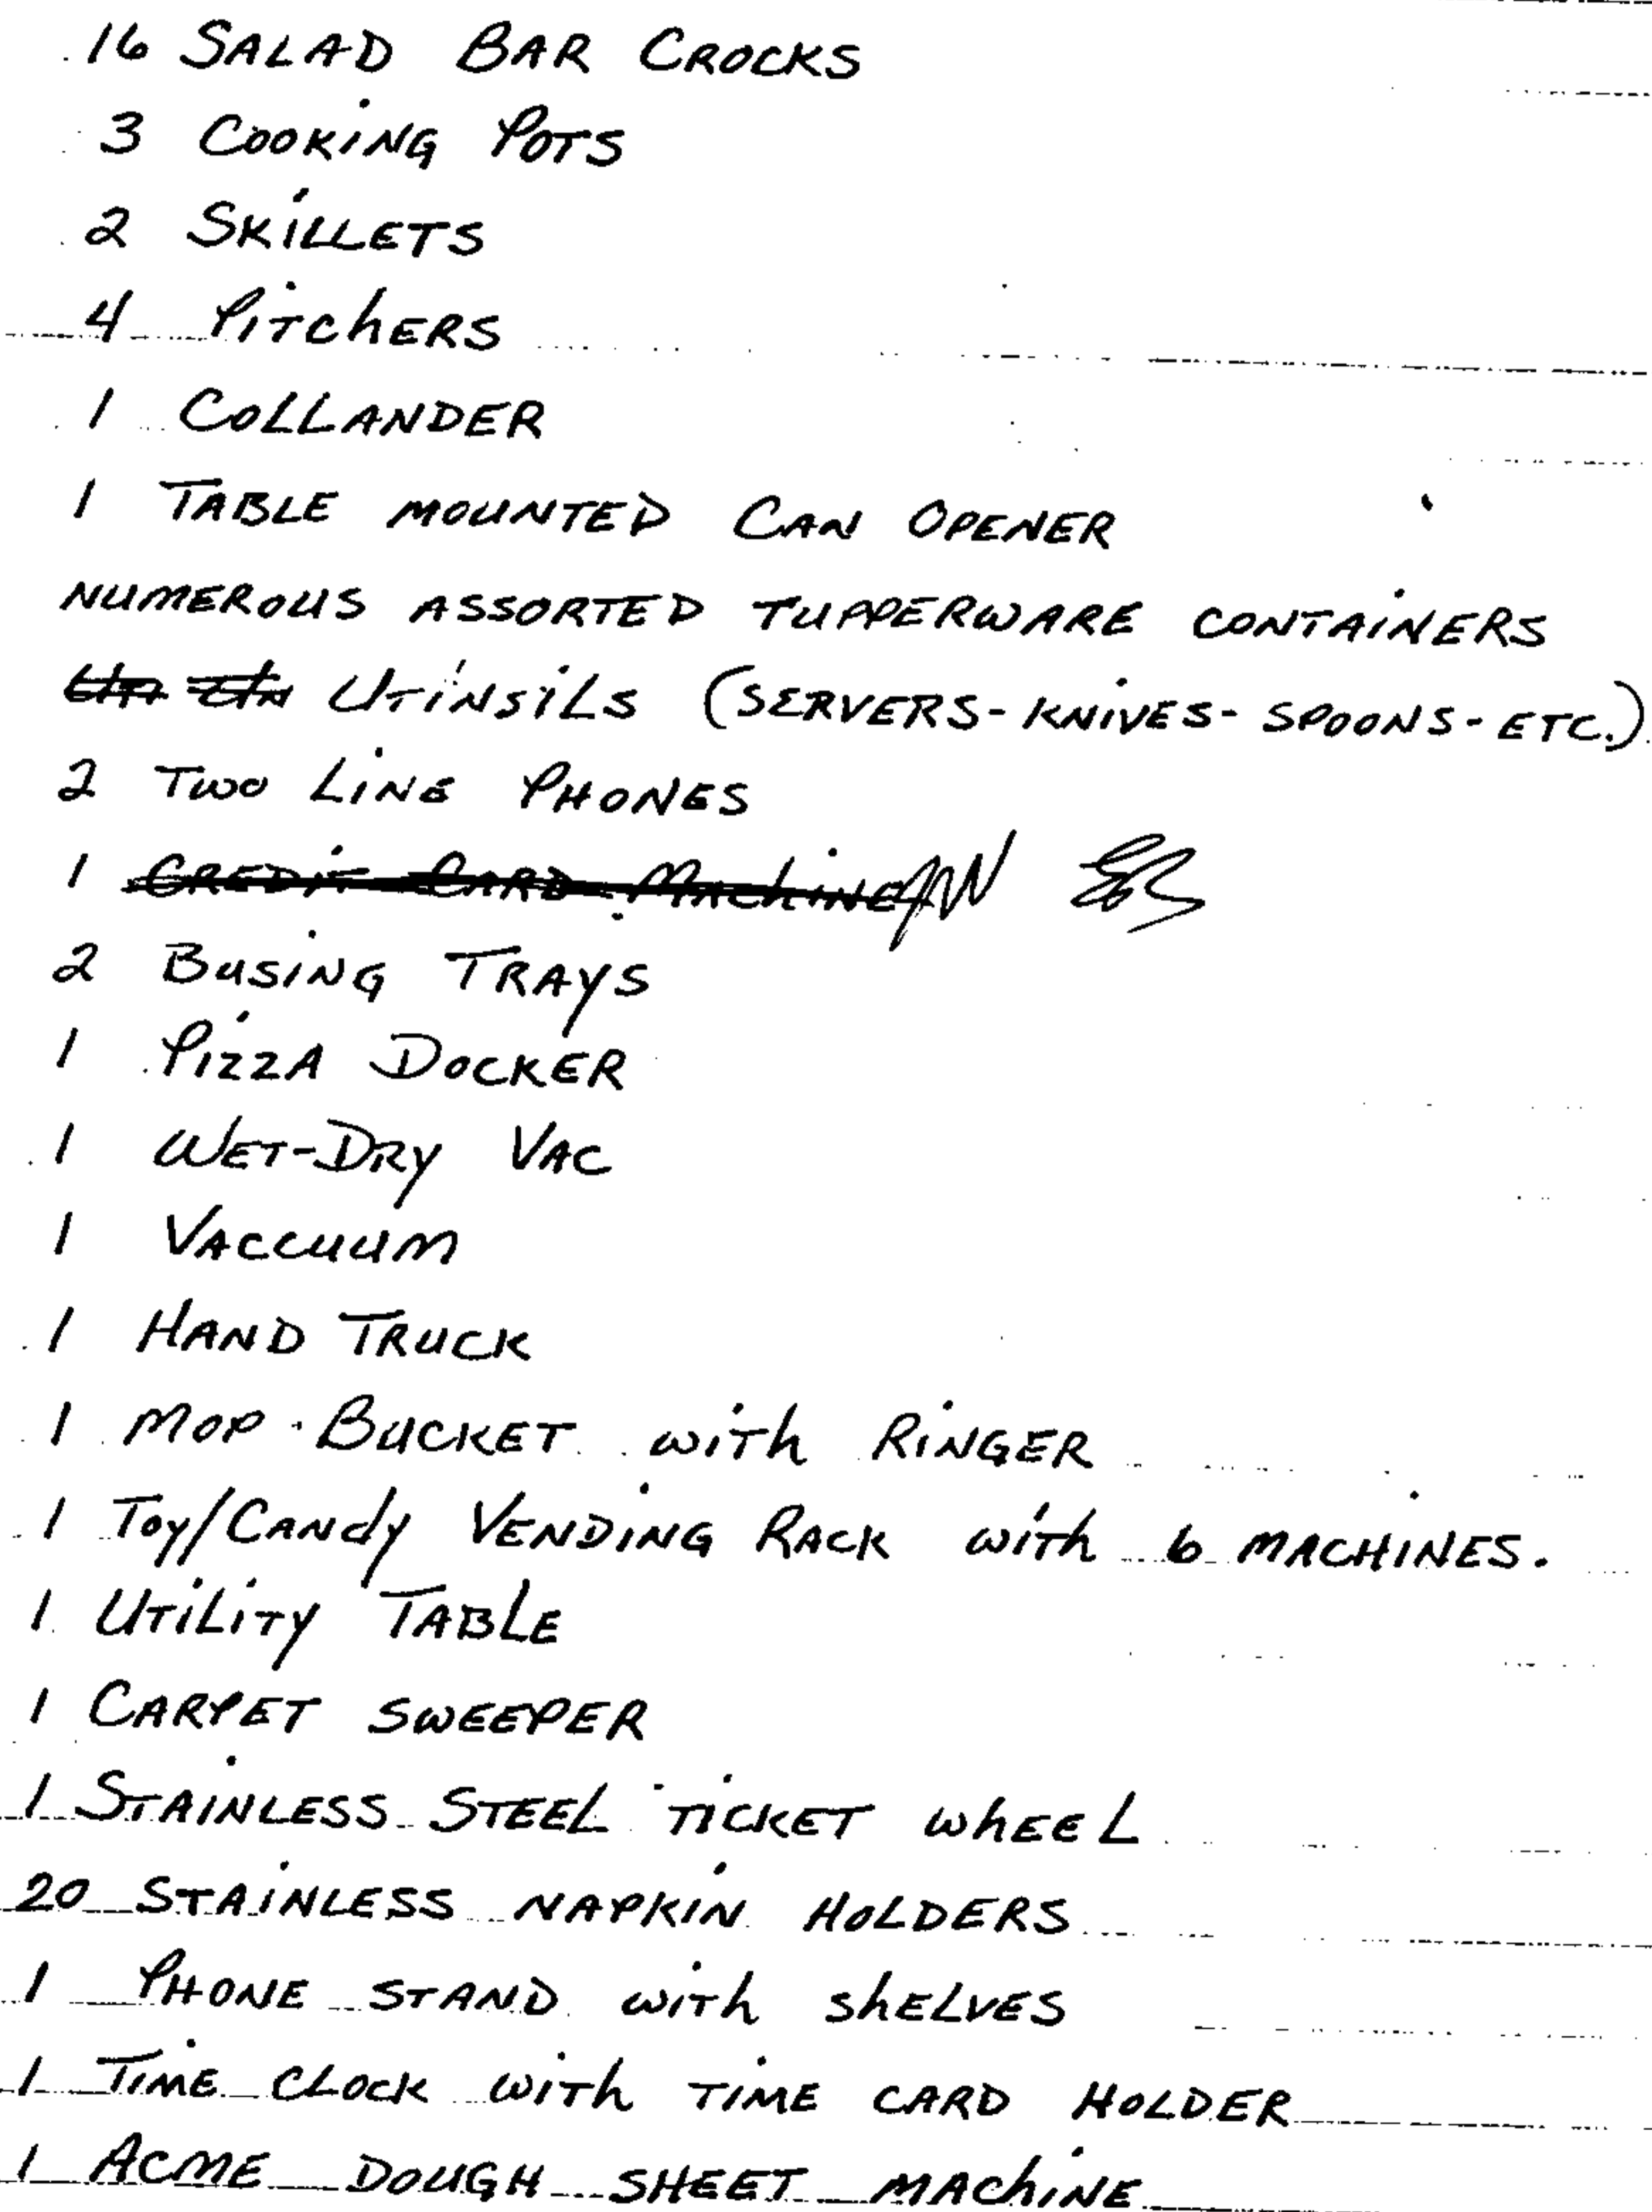 16 SALAD BAR CROCKS
3 COOKING POTS
2 SKILLETS
4 PITCHERS
1 COLLANDER
1 TABLE MOUNTED CAN OPENER
NUMEROUS ASSORTED TUPPERWARE CONTAINERS
UTINSILS (SERVERS-KNIVES-SPOONS-ETC.)
2 TWO LINE PHONES
1 CREDIT CARD MACHINE
2 BUSING TRAYS
1 PIZZA DOCKER
1 WET-DRY VAC
1 VACCUUM
1 HAND TRUCK
1 MOP BUCKET with RINGER
1 TOY/CANDY VENDING RACK with 6 MACHINES.
1 UTILITY TABLE
1 CARPET SWEEPER
1 STAINLESS STEEL TICKET WHEEL
20 STAINLESS NAPKIN HOLDERS
1 PHONE STAND with SHELVES
1 TIME CLOCK with TIME CARD HOLDER
1 ACME DOUGH SHEET MACHINE